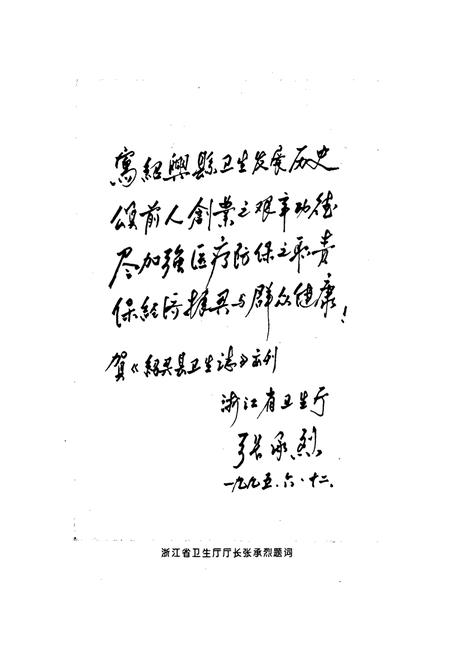 寫紹興縣卫生发展历史
颂前人創業之艰辛功德
尽加強医疗防保之职责
保经济振兴与群众健康!
贺《紹兴县卫生志》付刊
浙江省卫生厅
张承烈
一九九五.六.十二.
浙江省卫生厅厅长张承烈题词